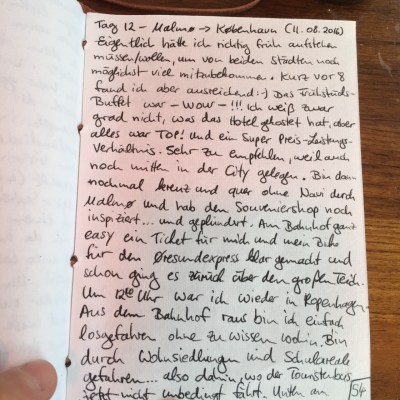 Tag 12 - Malmø -> København (11.08.2016)
Eigentlich hätte ich richtig früh aufstehen
müssen/wollen, um von beiden Städten noch
möglichst viel mitzubekommen. Kurz vor 8
fand ich aber ausreichend :-) Das Frühstücks-
Buffet war - WOW - !!! Ich weiß zwar
grad nicht, was das Hotel gekostet hat, aber
alles war TOP! und ein Super Preis-Leistungs-
verhältnis. Sehr zu empfehlen, weil auch
noch mitten in der City gelegen. Bin dann
nochmal kreuz und quer ohne Navi durch
Malmø und hab den Souveniershop noch
inspiziert... und geplündert. Am Bahnhof ganz
easy ein Ticket für mich und mein Bike
für den Øresundexpress klar gemacht und
schon ging es zurück über den großen Teich.
Um 12 Uhr war ich wieder in Kopenhagen.
Aus dem Bahnhof raus bin ich einfach
losgefahren ohne zu wissen wohin. Bin
durch Wohnsiedlungen und Schulareale
gefahren... also dahin, wo der Touristenbus
jetzt nicht unbedingt fährt. Unten am
54